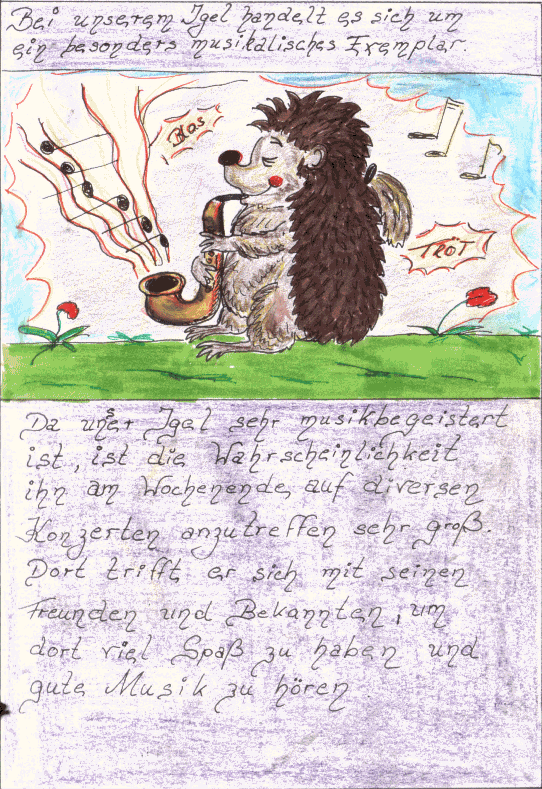 Bei unserem Igel handelt es sich um
ein besonders musikalisches Exemplar.
Blas
TRÖT
Da unser Igel sehr musikbegeistert
ist, ist die Wahrscheinlichkeit
ihn am Wochenende, auf diversen
Konzerten anzutreffen sehr groß.
Dort trifft er sich mit seinen
Freunden und Bekannten, um
dort viel Spaß zu haben und
gute Musik zu hören